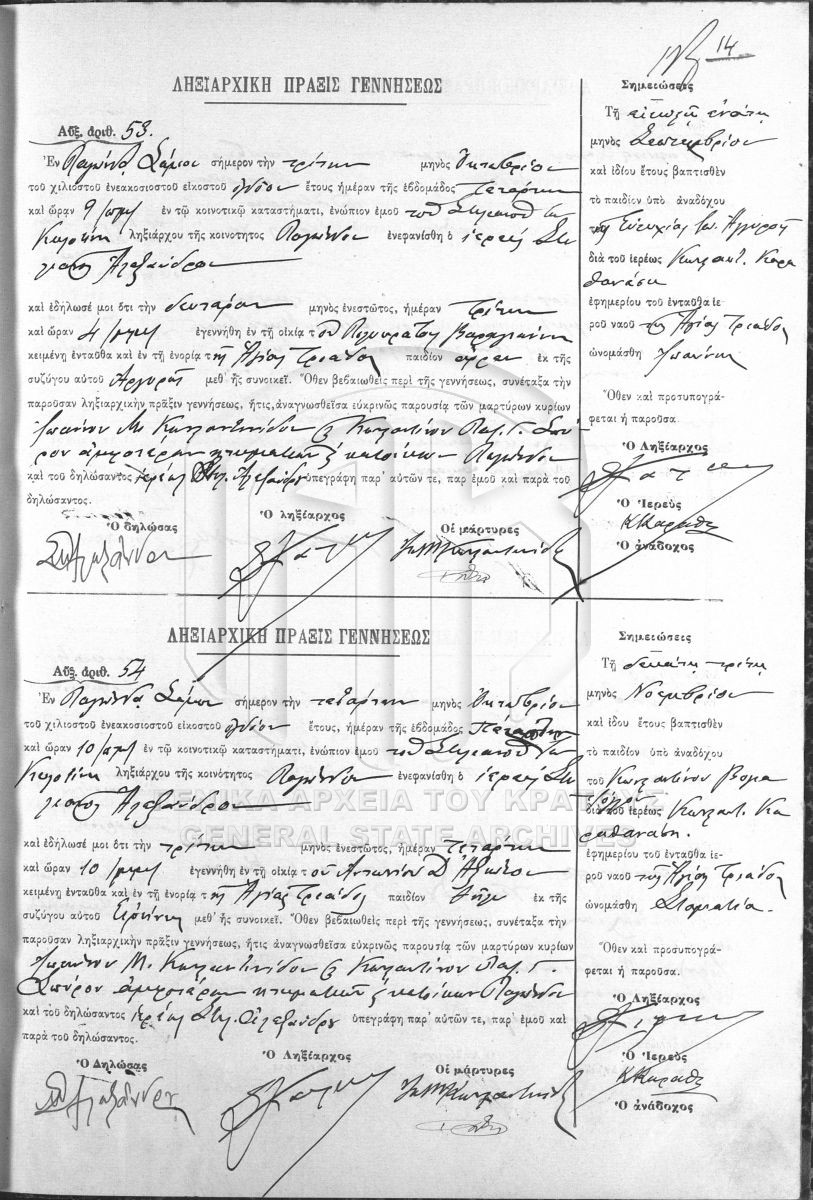 14
ΛΗΞΙΑΡΧΙΚΗ ΠΡΑΞΙΣ ΓΕΝΝΗΣΕΩΣ
Αὔξ. ἀριθ. 53.
Ἐν Παγώνδα Σάμου σήμερον τὴν τρίτην μηνὸς Ὀκτωβρίου
τοῦ χιλιοστοῦ ἐνεακοσιοστοῦ εἰκοστοῦ ὀγδόου ἔτους ἡμέραν τῆς ἑβδομάδος Τετάρτην
καὶ ὥραν 9 π.μ. ἐν τῷ κοινοτικῷ καταστήματι, ἐνώπιον ἐμοῦ τοῦ
ληξιάρχου τῆς κοινότητος Παγώνδου ἐνεφανίσθη ὁ ἱερεὺς Στυ
λιανὸς Ἀλεξάνδρου
καὶ ἐδήλωσέ μοι ὅτι τὴν δευτέραν μηνὸς ἐνεστῶτος, ἡμέραν Τρίτην
καὶ ὥραν 4 μ.μ. ἐγεννήθη ἐν τῇ οἰκίᾳ τοῦ Πολυκράτους
κειμένῃ ἐνταῦθα καὶ ἐν τῇ ἐνορίᾳ τῆς Ἁγίας Τριάδος παιδίον ἄρρεν ἐκ τῆς
συζύγου αὐτοῦ Ἀργυρῆς μεθ' ἧς συνοικεῖ. Ὅθεν βεβαιωθεὶς περὶ τῆς γεννήσεως, συνέταξα τὴν
παροῦσαν ληξιαρχικὴν πρᾶξιν γεννήσεως, ἥτις, ἀναγνωσθεῖσα εὐκρινῶς παρουσίᾳ τῶν μαρτύρων κυρίων
Ἰωάννου Μ. Κωνσταντινίδου & Κωνσταντίνου Παπ. Γ. Σπύ
ρου ἀμφοτέρων κτηματιῶν & κατοίκων Παγώνδου
καὶ τοῦ δηλώσαντος ἱερέως Στυλ. Ἀλεξάνδρου ὑπεγράφη παρ' αὐτῶν τε, παρ' ἐμοῦ καὶ παρὰ τοῦ
δηλώσαντος.
Ὁ δηλώσας Ὁ ληξίαρχος Οἱ μάρτυρες
Σημειώσεις
Τῇ εἰκοστῇ ἐνάτῃ
μηνὸς Σεπτεμβρίου
καὶ ἰδίου ἔτους βαπτισθὲν
τὸ παιδίον ὑπὸ ἀναδόχου
τῆς Εὐτυχίας
διὰ τοῦ ἱερέως Κωνσταντ. Καρα
θανάση
ἐφημερίου τοῦ ἐνταῦθα ἱε-
ροῦ ναοῦ τῆς Ἁγίας Τριάδος
ὠνομάσθη Ἰωάννης
Ὅθεν καὶ προσυπογρά-
φεται ἡ παροῦσα.
Ὁ Ληξίαρχος
Ὁ Ἱερεὺς
Ὁ ἀνάδοχος
ΛΗΞΙΑΡΧΙΚΗ ΠΡΑΞΙΣ ΓΕΝΝΗΣΕΩΣ
Αὔξ. ἀριθ. 54
Ἐν Παγώνδα Σάμου σήμερον τὴν τετάρτην μηνὸς Ὀκτωβρίου
τοῦ χιλιοστοῦ ἐνεακοσιοστοῦ εἰκοστοῦ ὀγδόου ἔτους, ἡμέραν τῆς ἑβδομάδος Πέμπτην
καὶ ὥραν 10 π.μ. ἐν τῷ κοινοτικῷ καταστήματι, ἐνώπιον ἐμοῦ τοῦ
ληξιάρχου τῆς κοινότητος Παγώνδου ἐνεφανίσθη ὁ ἱερεὺς Στυ
λιανὸς Ἀλεξάνδρου
ΓΕΝΙΚΑ ΑΡΧΕΙΑ ΤΟΥ ΚΡΑΤΟΥΣ
GENERAL STATE ARCHIVES
καὶ ἐδήλωσέ μοι ὅτι τὴν τρίτην μηνὸς ἐνεστῶτος, ἡμέραν Τετάρτην
καὶ ὥραν 10 μ.μ. ἐγεννήθη ἐν τῇ οἰκίᾳ τοῦ Ἀντωνίου
κειμένῃ ἐνταῦθα καὶ ἐν τῇ ἐνορίᾳ τῆς Ἁγίας Τριάδος παιδίον θῆλυ ἐκ τῆς
συζύγου αὐτοῦ Εἰρήνης μεθ' ἧς συνοικεῖ. Ὅθεν βεβαιωθεὶς περὶ τῆς γεννήσεως, συνέταξα τὴν
παροῦσαν ληξιαρχικὴν πρᾶξιν γεννήσεως, ἥτις ἀναγνωσθεῖσα εὐκρινῶς παρουσίᾳ τῶν μαρτύρων κυρίων
Ἰωάννου Μ. Κωνσταντινίδου & Κωνσταντίνου Παπ. Γ.
Σπύρου ἀμφοτέρων κτηματιῶν & κατοίκων Παγώνδου
καὶ τοῦ δηλώσαντος ἱερέως Στυλ. Ἀλεξάνδρου ὑπεγράφη παρ' αὐτῶν τε, παρ' ἐμοῦ καὶ
παρὰ τοῦ δηλώσαντος.
Ὁ Δηλώσας Ὁ Ληξίαρχος Οἱ μάρτυρες
Σημειώσεις
Τῇ δεκάτῃ τρίτῃ
μηνὸς Νοεμβρίου
καὶ ἰδίου ἔτους βαπτισθὲν
τὸ παιδίον ὑπὸ ἀναδόχου
τοῦ Κωνσταντίνου
διὰ τοῦ ἱερέως Κωνσταντ. Κα
ραθανάση.
ἐφημερίου τοῦ ἐνταῦθα ἱε-
ροῦ ναοῦ τῆς Ἁγίας Τριάδος
ὠνομάσθη Σταματία.
Ὅθεν καὶ προσυπογρά-
φεται ἡ παροῦσα.
Ὁ Ληξίαρχος
Ὁ Ἱερεὺς
Ὁ ἀνάδοχος